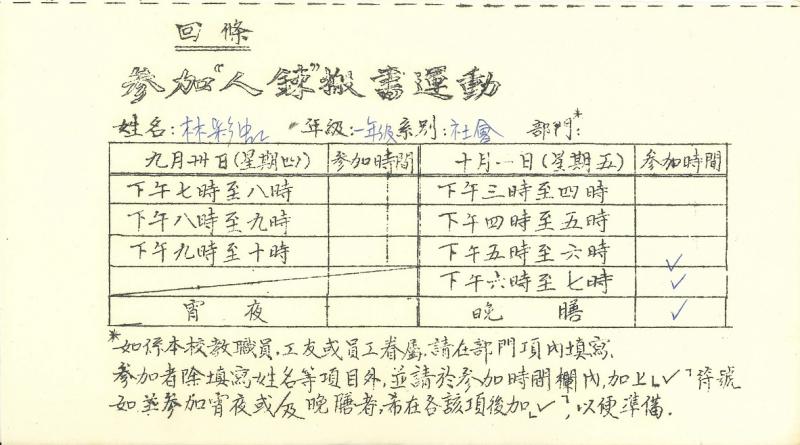 回條
參加“人鍊”搬書運動
姓名:林彩虹 年級:一年級 系別:社會 部門*:
九月卅日(星期四) 參加時間 十月一日(星期五) 參加時間
下午七時至八時 下午三時至四時
下午八時至九時 下午四時至五時
下午九時至十時 下午五時至六時 ✓
下午六時至七時 ✓
宵夜 晚膳 ✓
*如係本校教職員、工友或員工眷屬,請在部門項內填寫.
參加者除填寫姓名等項目外,並請於參加時間欄內,加上「✓」符號
如並參加宵夜或/及晚膳者,希在各該項後加「✓」,以便準備.